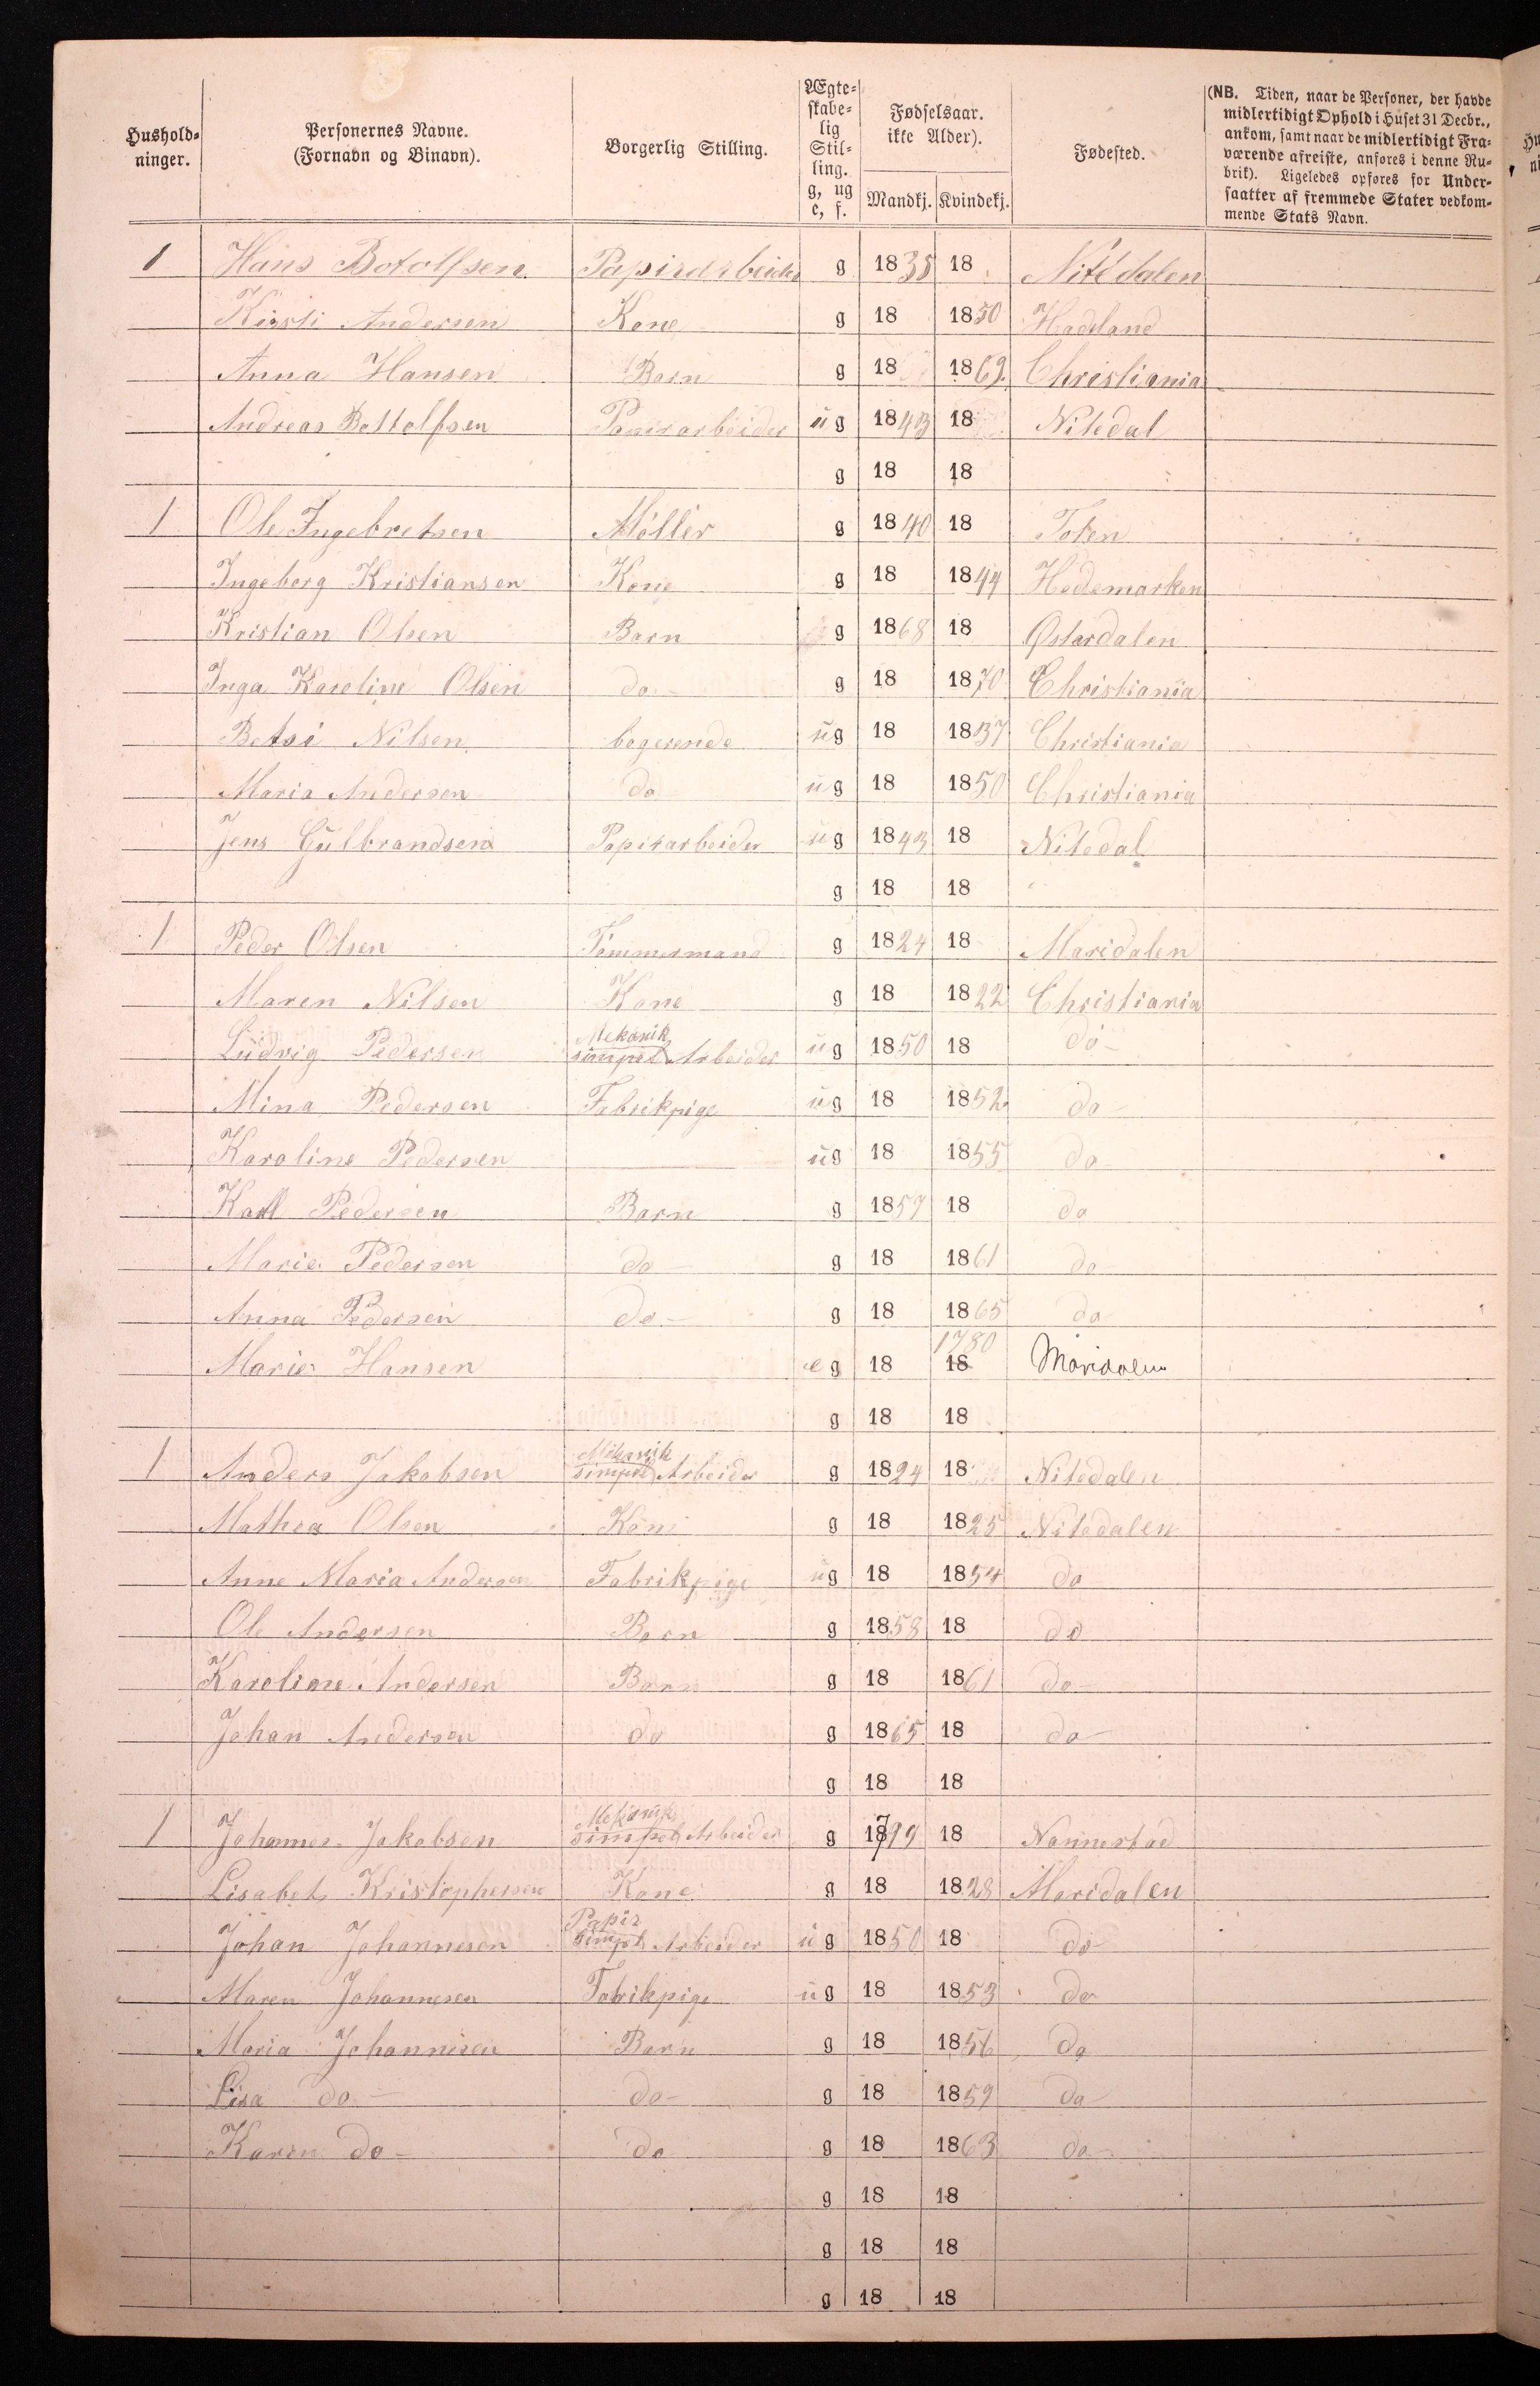 Hushold-
ninger.
Personernes Navne.
(Fornavn og Binavn).
Borgerlig Stilling.
Ægte-
skabe-
lig
Stil-
ling.
g, ug
e, f.
Fødselsaar.
ikke Alder).
Mandkj. Kvindekj.
Fødested.
(NB. Tiden, naar de Personer, der havde
midlertidigt Ophold i Huset 31 Decbr.,
ankom, samt naar de midlertidigt Fra-
værende afreiste, anføres i denne Ru-
brik). Ligeledes opføres for Under-
saatter af fremmede Stater vedkom-
mende Stats Navn.
1 Hans Botolfsen Papirarbeider g 1835 18 Nitedalen
Kirsti Andersen Kone g 18 1850 Hadeland
Anna Hansen Barn g 18 1869 Christiania
Andreas Bottolfsen Papirarbeider ug 1843 18 Nitedal
g 18 18
1 Ole Ingebretsen Møller g 1840 18 Toten
Ingeborg Kristiansen Kone g 18 1844 Hedemarken
Kristian Olsen Barn g 1868 18 Østerdalen
Inga Karoline Olsen do g 18 1870 Christiania
Betsi Nilsen logerende ug 18 1837 Christiania
Maria Andersen do ug 18 1850 Christiania
Jens Gulbrandsen Papirarbeider ug 1843 18 Nitedal
g 18 18
1 Peder Olsen Tømmermand g 1824 18 Maridalen
Maren Nilsen Kone g 18 1822 Christiania
Mekanik
Ludvig Pedersen simpel Arbeider ug 1850 18 do
Mina Pedersen Fabrikpige ug 18 1852 do
Karoline Pedersen ug 18 1855 do
Karl Pedersen Barn g 1859 18 do
Marie Pedersen do g 18 1861 do
Anna Pedersen do g 18 1865 do
1780
Marie Hansen e g 18 18 Maridalen
g 18 18
Mekanik
1 Anders Jakobsen simpel Arbeider g 1824 18 Nitedalen
Mathea Olsen Kone g 18 1825 Nitedalen
Anne Maria Andersen Fabrikpige ug 18 1854 do
Ole Andersen Barn g 1858 18 do
Karoline Andersen Barn g 18 1861 do
Johan Andersen do g 1865 18 do
g 18 18
Mekanik
1 Johannes Jakobsen simpel Arbeider g 1799 18 Nannestad
Lisabeth Kristophersen Kone g 18 1828 Maridalen
Papir
Johan Johannesen simpel Arbeider ug 1850 18 do
Maren Johannesen Fabrikpige ug 18 1853 do
Maria Johannesen Barn g 18 1856 do
Lisa do do g 18 1859 do
Karen do do g 18 1863 do
g 18 18
g 18 18
g 18 18